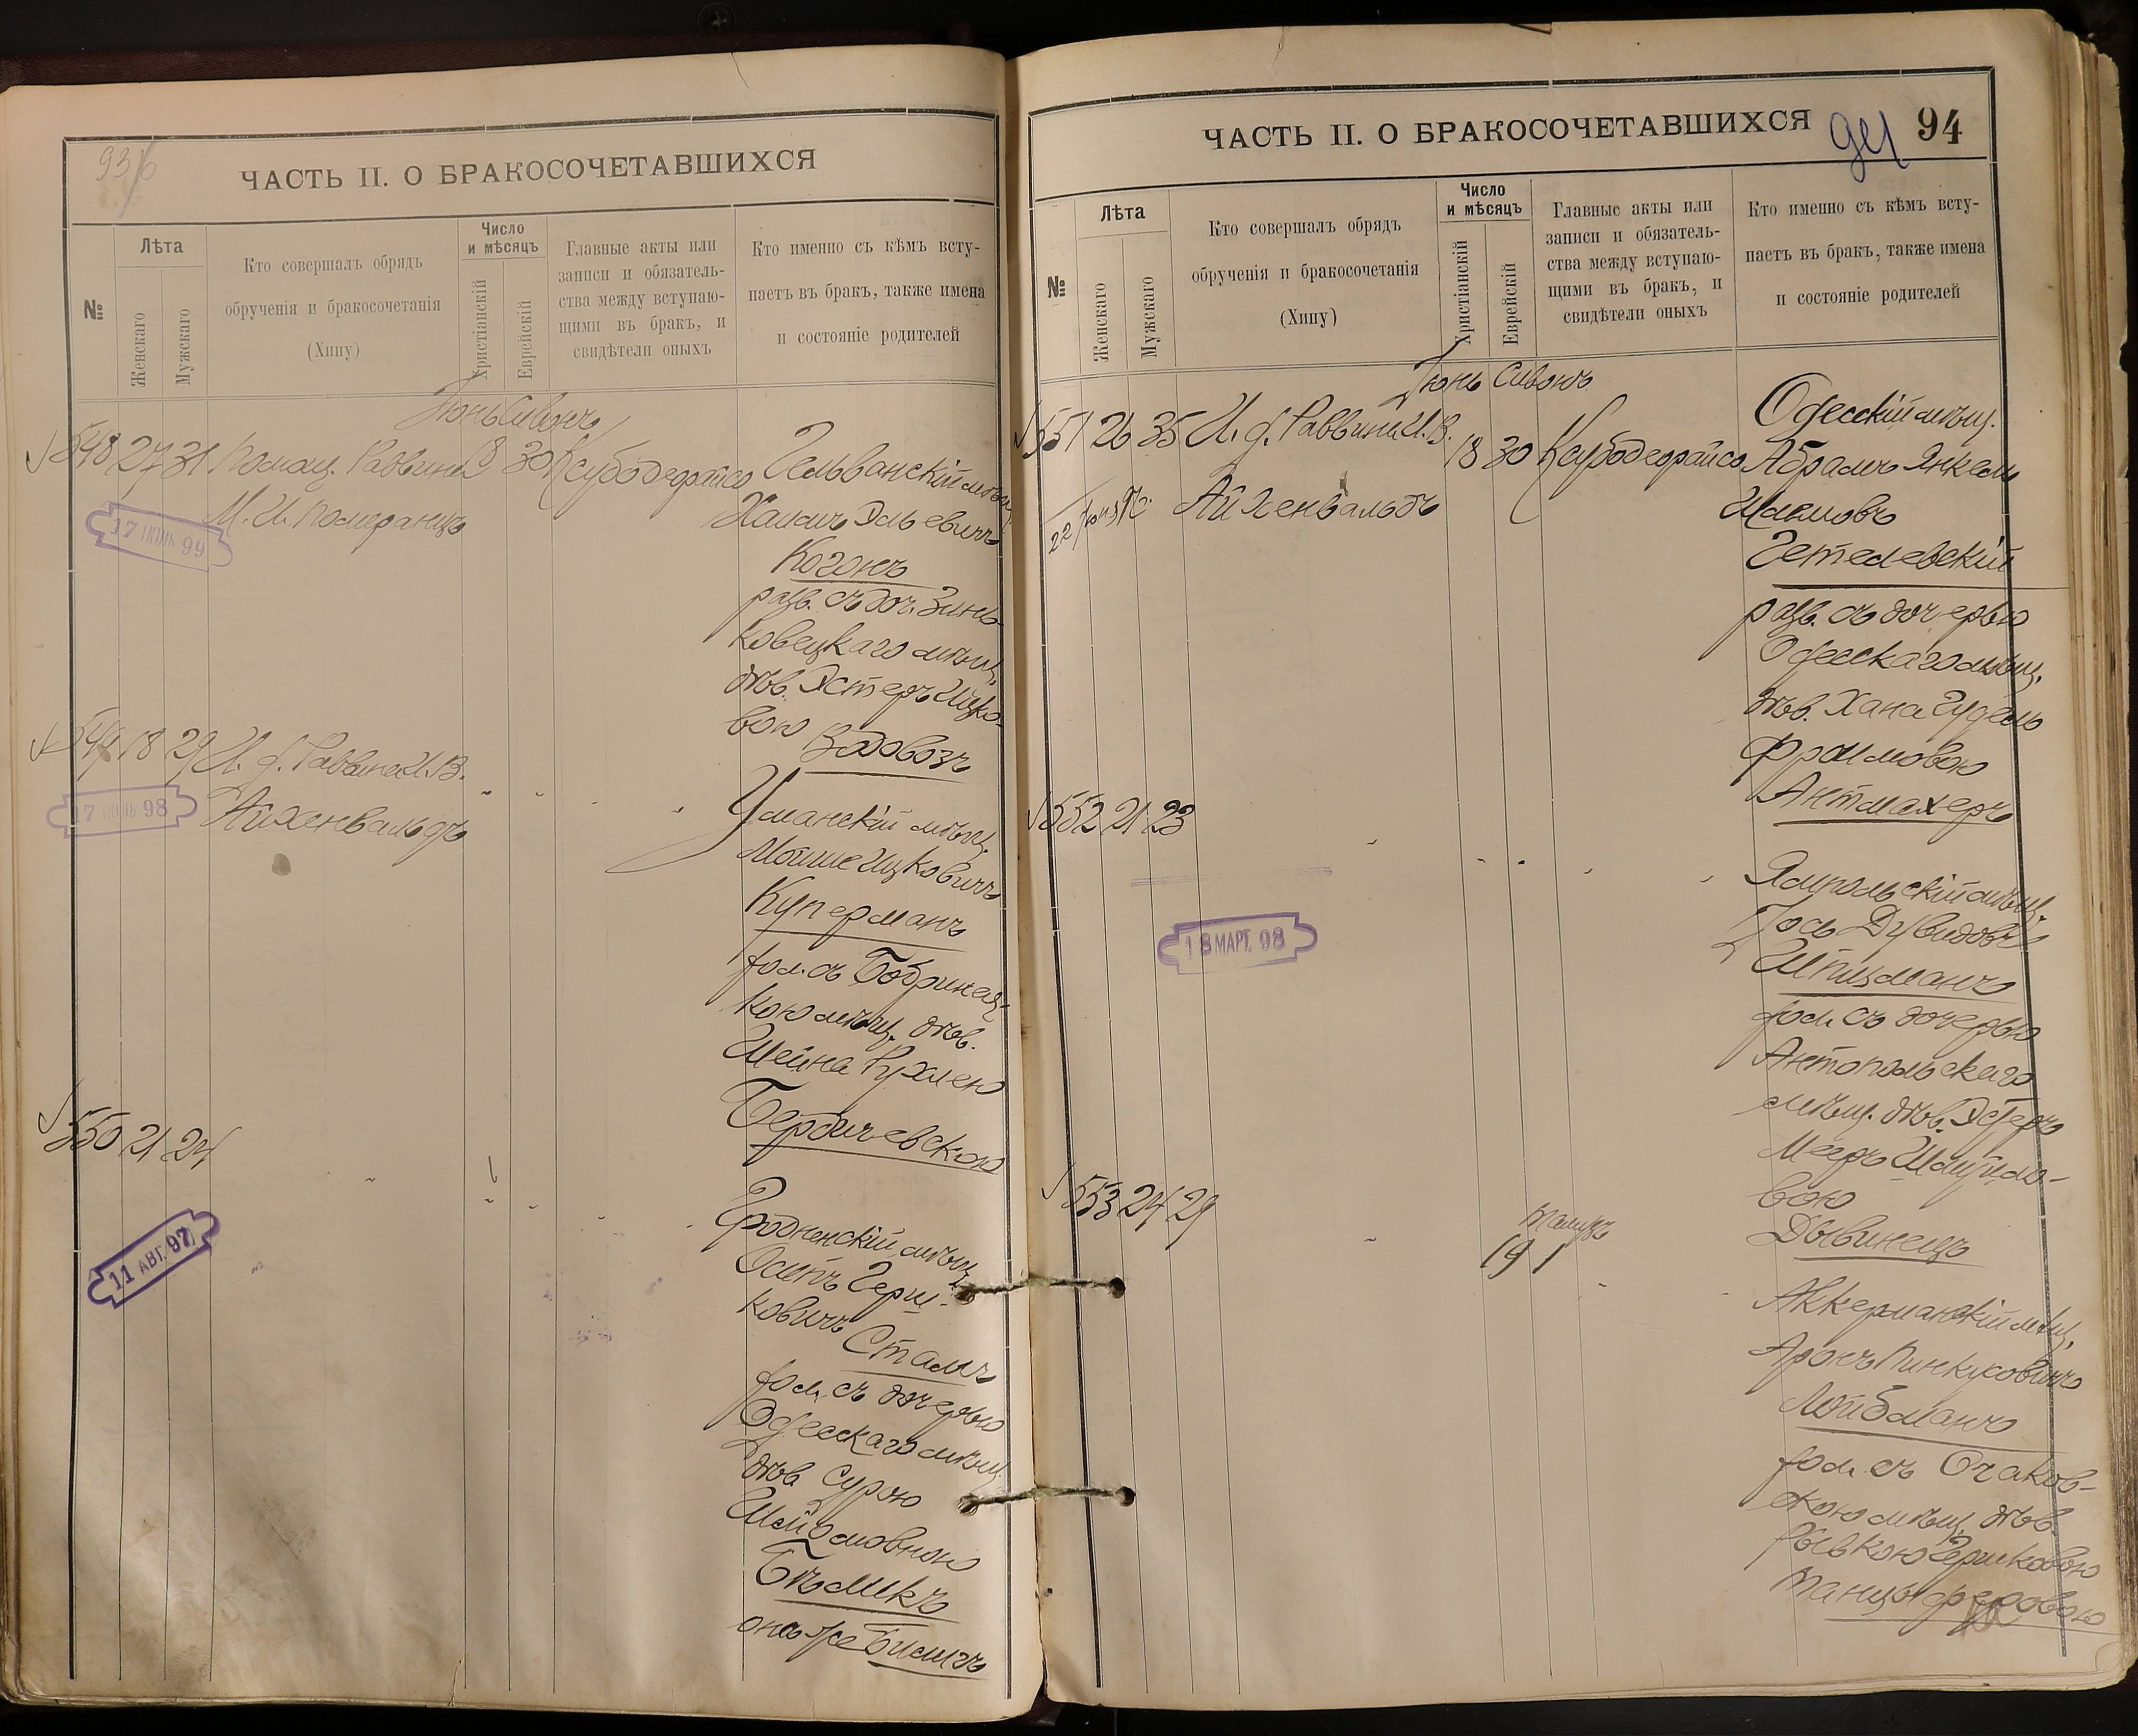 93/б
ЧАСТЬ II. О БРАКОСОЧЕТАВШИХСЯ
№
Лѣта
Женскаго
Мужскаго
Кто совершалъ обрядъ
обрученія и бракосочетанія
(Хипу)
Число
и мѣсяцъ
Христіанскій
Еврейскій
Главные акты или
записи и обязатель-
ства между вступаю-
щими въ бракъ, и
свидѣтели оныхъ
Кто именно съ кѣмъ всту-
паетъ въ бракъ, также имена
и состояніе родителей
Іюнь Сивонъ
548 27 31 Помощ. Раввина 18 30 Ксубодеорайсо
М. И. Померанцъ
17 ІЮНЬ 99
Гельванскій мѣщ.
Хаимъ Эльевичъ
Когонъ
разв. съ доч. Зинь-
ковецкаго мѣщ.
дѣв. Эстеръ Ицко-
вою Водовозъ
549 18 29 И. д. Раввина И. В.
Айхенвальдъ
17 ІЮНЬ 98
Уманскій мѣщ.
Мошие Ицковичъ
Куперманъ
хол. съ Бобринец-
кою мѣщ. дѣв.
Шейна Рухлею
Бердичевскою
550 21 24
11 АВГ. 97
Гродненскій мѣщ.
Осипъ Герш-
ковичъ Сталь
хол. съ дочерью
Одесскаго мѣщ.
дѣв. Сурою
Шойломовною
она же
ЧАСТЬ II. О БРАКОСОЧЕТАВШИХСЯ
94
№
Лѣта
Женскаго
Мужскаго
Кто совершалъ обрядъ
обрученія и бракосочетанія
(Хипу)
Число
и мѣсяцъ
Христіанскій
Еврейскій
Главные акты или
записи и обязатель-
ства между вступаю-
щими въ бракъ, и
свидѣтели оныхъ
Кто именно съ кѣмъ всту-
паетъ въ бракъ, также имена
и состояніе родителей
Іюнь Сивонъ
551 26 35 И. д. Раввина И. В. 18 30 Ксубодеорайсо
Айхенвальдъ
Одесскій мѣщ.
Абрамъ Янкель
Гетелевскій
разв. съ дочерью
Одесскаго мѣщ.
дѣв. Хана Гудель
Фроимовою
Антмахеръ
552 21 23
18 МАРТ. 98
Ямпольскій мѣщ.
Іось Дувидовъ
Шпицманъ
хол. съ дочерью
Антопольскаго
мѣщ. дѣв. Эстеръ
Мееръ Шмуйло-
вою
Дывинецъ
553 24 29
Тамузъ
19 1
Аккерманскій мѣщ.
Аронъ Пинкусовичъ
Лойбманъ
хол. съ Очаков-
скою мѣщ. дѣв.
Рывкою Гершковою
Танцыферовою